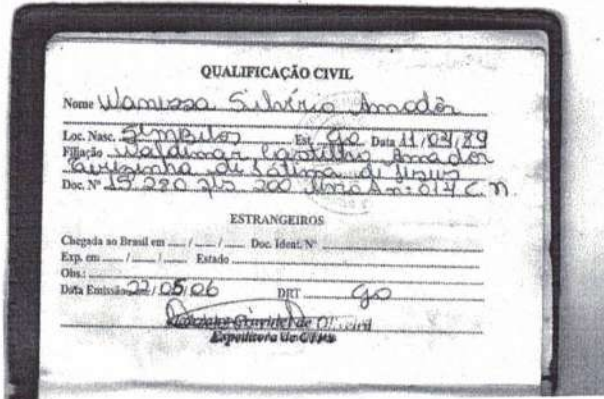 QUALIFICAÇÃO CIVIL
Nome Wanessa Silvério Amador
Loc. Nasc. Est. GO Data 11/04/89
Filiação Waldimar Castilho Amador
de Fátima de Jesus
Doc. Nº 15.280 fls 200 Livro An: 017 C.N.
ESTRANGEIROS
Chegada ao Brasil em ...... / ...... / ...... Doc. Ident. Nº
Exp. em ...... / ...... / ...... Estado
Obs.:
Data Emissão 22/05/06 DRT GO
de Oliveira
Expeditora de CTPS